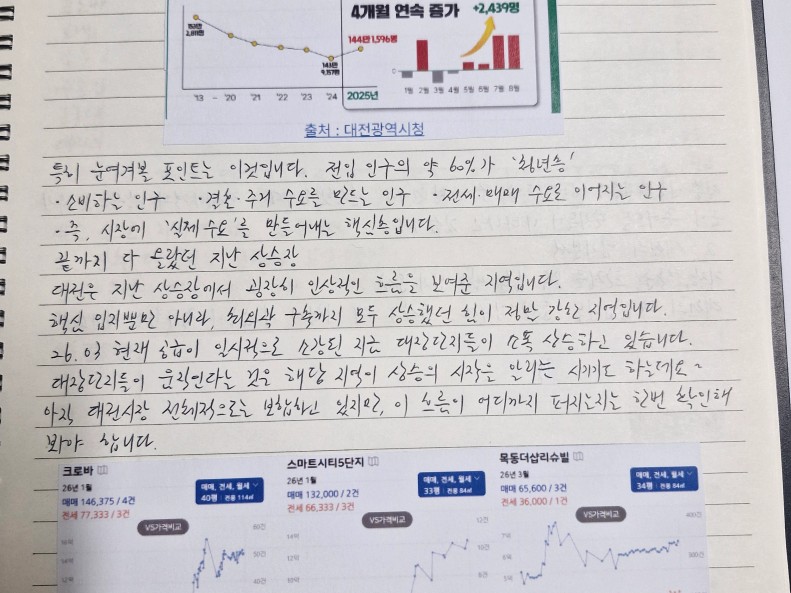 4개월 연속 증가
+2,439명
144만 1,596명
'13 - '20 '21 '22 '23 '24 2025년
0
1월 2월 3월 4월 5월 6월 7월 8월
출처 : 대전광역시청
특히 눈여겨볼 포인트는 이것입니다. 전입 인구의 약 60%가 '청년층'
· 소비하는 인구 · 결혼·주거 수요를 만드는 인구 · 전세·매매 수요로 이어지는 인구
· 즉, 시장에 '실제 수요'를 만들어내는 핵심층입니다.
끝까지 다 올랐던 지난 상승장
대전은 지난 상승장에서 굉장히 인상적인 흐름을 보여준 지역입니다.
핵심 입지뿐만 아니라, 최외곽 구축까지 모두 상승했던 힘이 정말 강한 지역입니다.
26.03 현재 공급이 일시적으로 소강된 지금 대장단지들이 소폭 상승하고 있습니다.
대장단지들이 움직인다는 것은 해당 지역이 상승의 시작을 알리는 시기기도 하는데요~
아직 대전시장 전체적으로는 보합하고 있지만, 이 흐름이 어디까지 퍼지는지는 한번 확인해
봐야 합니다.
크로바
26년 1월
매매 146,375 / 4건
전세 77,333 / 3건
매매, 전세, 월세
40평 전용 114㎡
VS가격비교
스마트시티5단지
26년 1월
매매 132,000 / 2건
전세 66,333 / 3건
매매, 전세, 월세
33평 전용 84㎡
VS가격비교
목동더샵리슈빌
26년 3월
매매 65,600 / 3건
전세 36,000 / 1건
매매, 전세, 월세
34평 전용 84㎡
VS가격비교